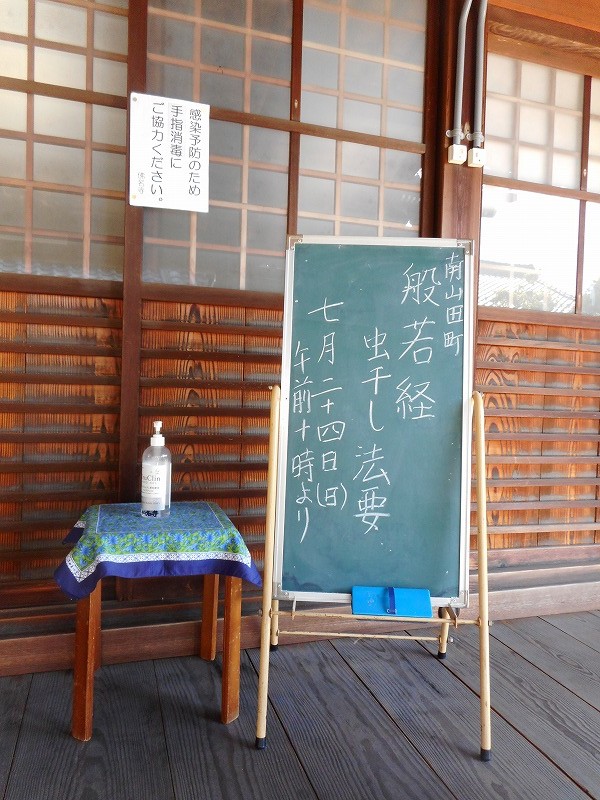 感染予防のため
手指消毒に
ご協力ください。
南山田町
般若経
虫干し法要
七月二十四日(日)
午前十時より